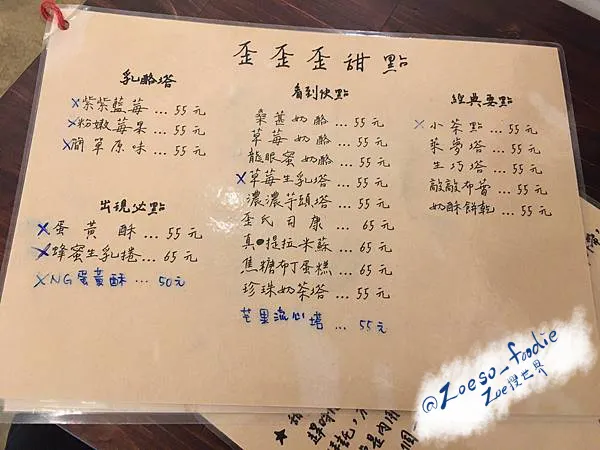 歪歪歪甜點
乳酪塔
×紫紫藍莓...55元
×粉嫩莓果...55元
×簡單原味...55元
出現必點
×蛋黃酥...55元
×蜂蜜生乳捲...65元
×NG蛋黃酥...50元
看到快點
桑葚奶酪...55元
草莓奶酪...55元
龍眼蜜奶酪...55元
×草莓生乳塔...55元
濃濃芋頭塔...55元
歪氏司康...65元
真●提拉米蘇...65元
焦糖布丁蛋糕...65元
珍珠奶茶塔...55元
芒果流心塔...55元
經典要點
×小茶點...55元
萊夢塔...55元
生巧塔...55元
敲敲布蕾...55元
奶酥餅乾...55元
@zoeso_foodie
Zoe慢世界